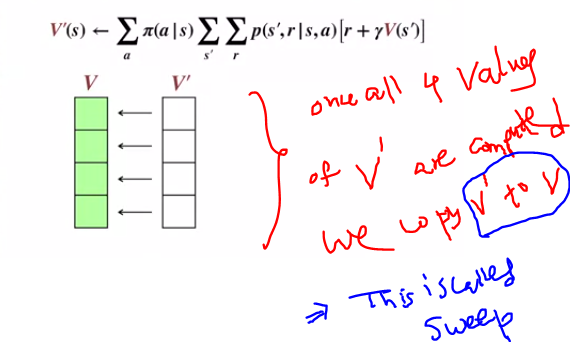 V'(s) ← ∑ₐ π(a|s) ∑ₛ' ∑ᵣ p(s', r|s, a)[r + γV(s')]
V V'
once all 4 values
of V' are computed
we copy V' to V
⇒ This is called
sweep